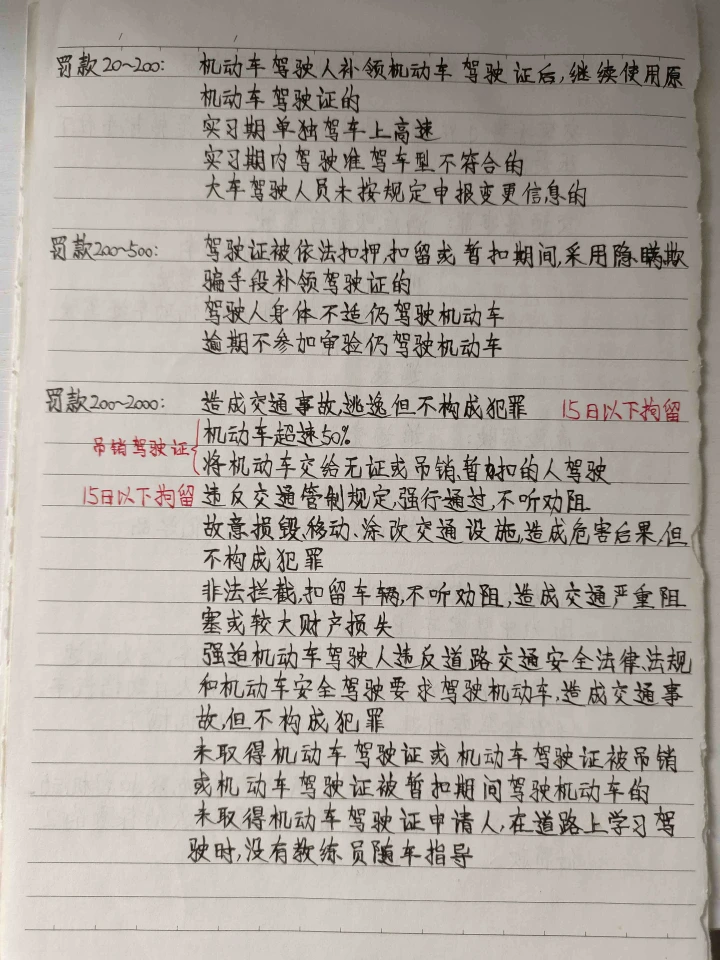 罚款20~200: 机动车驾驶人补领机动车驾驶证后,继续使用原
机动车驾驶证的
实习期单独驾车上高速
实习期内驾驶准驾车型不符合的
大车驾驶人员未按规定申报变更信息的
罚款200~500: 驾驶证被依法扣押,扣留或暂扣期间,采用隐瞒欺
骗手段补领驾驶证的
驾驶人身体不适仍驾驶机动车
逾期不参加审验仍驾驶机动车
罚款200~2000: 造成交通事故,逃逸但不构成犯罪 15日以下拘留
吊销驾驶证{机动车超速50%
将机动车交给无证或吊销、暂扣的人驾驶
15日以下拘留 违反交通管制规定,强行通过,不听劝阻
故意损毁、移动、涂改交通设施,造成危害后果,但
不构成犯罪
非法拦截,扣留车辆,不听劝阻,造成交通严重阻
塞或较大财产损失
强迫机动车驾驶人违反道路交通安全法律、法规
和机动车安全驾驶要求驾驶机动车,造成交通事
故,但不构成犯罪
未取得机动车驾驶证或机动车驾驶证被吊销
或机动车驾驶证被暂扣期间驾驶机动车的
未取得机动车驾驶证申请人,在道路上学习驾
驶时,没有教练员随车指导